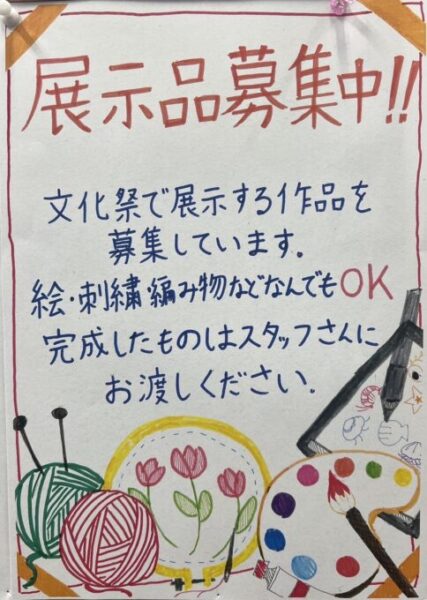 展示品募集中!!
文化祭で展示する作品を
募集しています.
絵・刺繍 編み物などなんでもOK
完成したものはスタッフさんに
お渡しください.